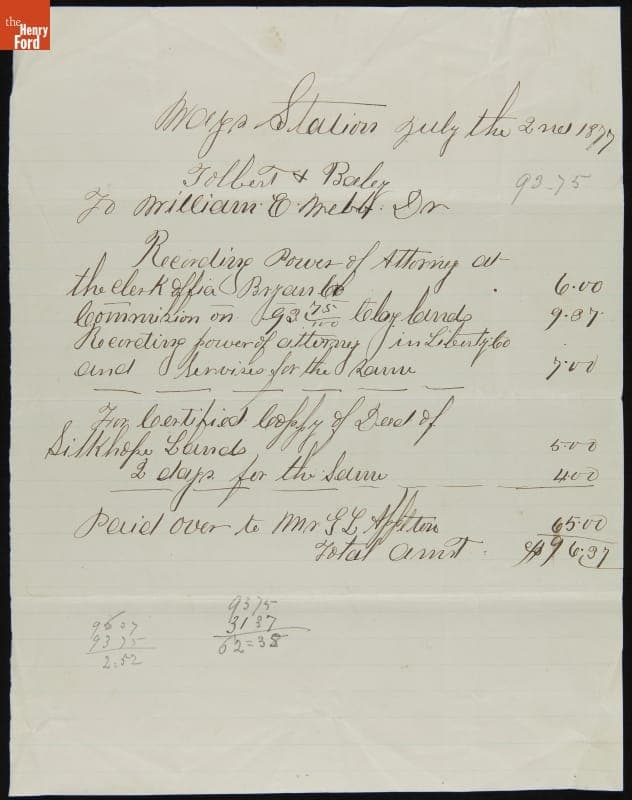 the
Henry
Ford
Ways Station July the 2nd 1877
Tolbert & Baley
93-75
To William. E. Webb. Dr
Recording Power of Attorney at
the clerk offia Bryan Co 6.00
Commision on 93 75/100 Clay land 9.37
Recording power of attorney in Liberty Co
and Servises for the Same 7.00
For Certified Coppy of Deed of
Silkhope Land 5.00
2 days for the Same 4.00
Paid over to Mr G L Appleton 65.00
Total amt. $96.37
9375
3137
62=38
9637
9375
2=52